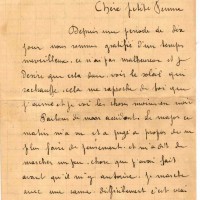 Chère petite Femme
Depuis une période de dix
jours nous sommes gratifié d'un temps
merveilleux, ce n'ai pas malheureux et je
désire que cela dure, voir le soleil qui
réchauffe, cela me raproche de toi que
j'aime et je vois les choses moins en noir
Parlons de mon accident. Le major ce
matin m'a vu et a jugé à propos de ne
plus faire de pansement, et m'a dit de
marcher un peu, chose que j'avais fait
avant qu'il m'y autorise. Je marche
avec une canne, difficilement c'est vrai